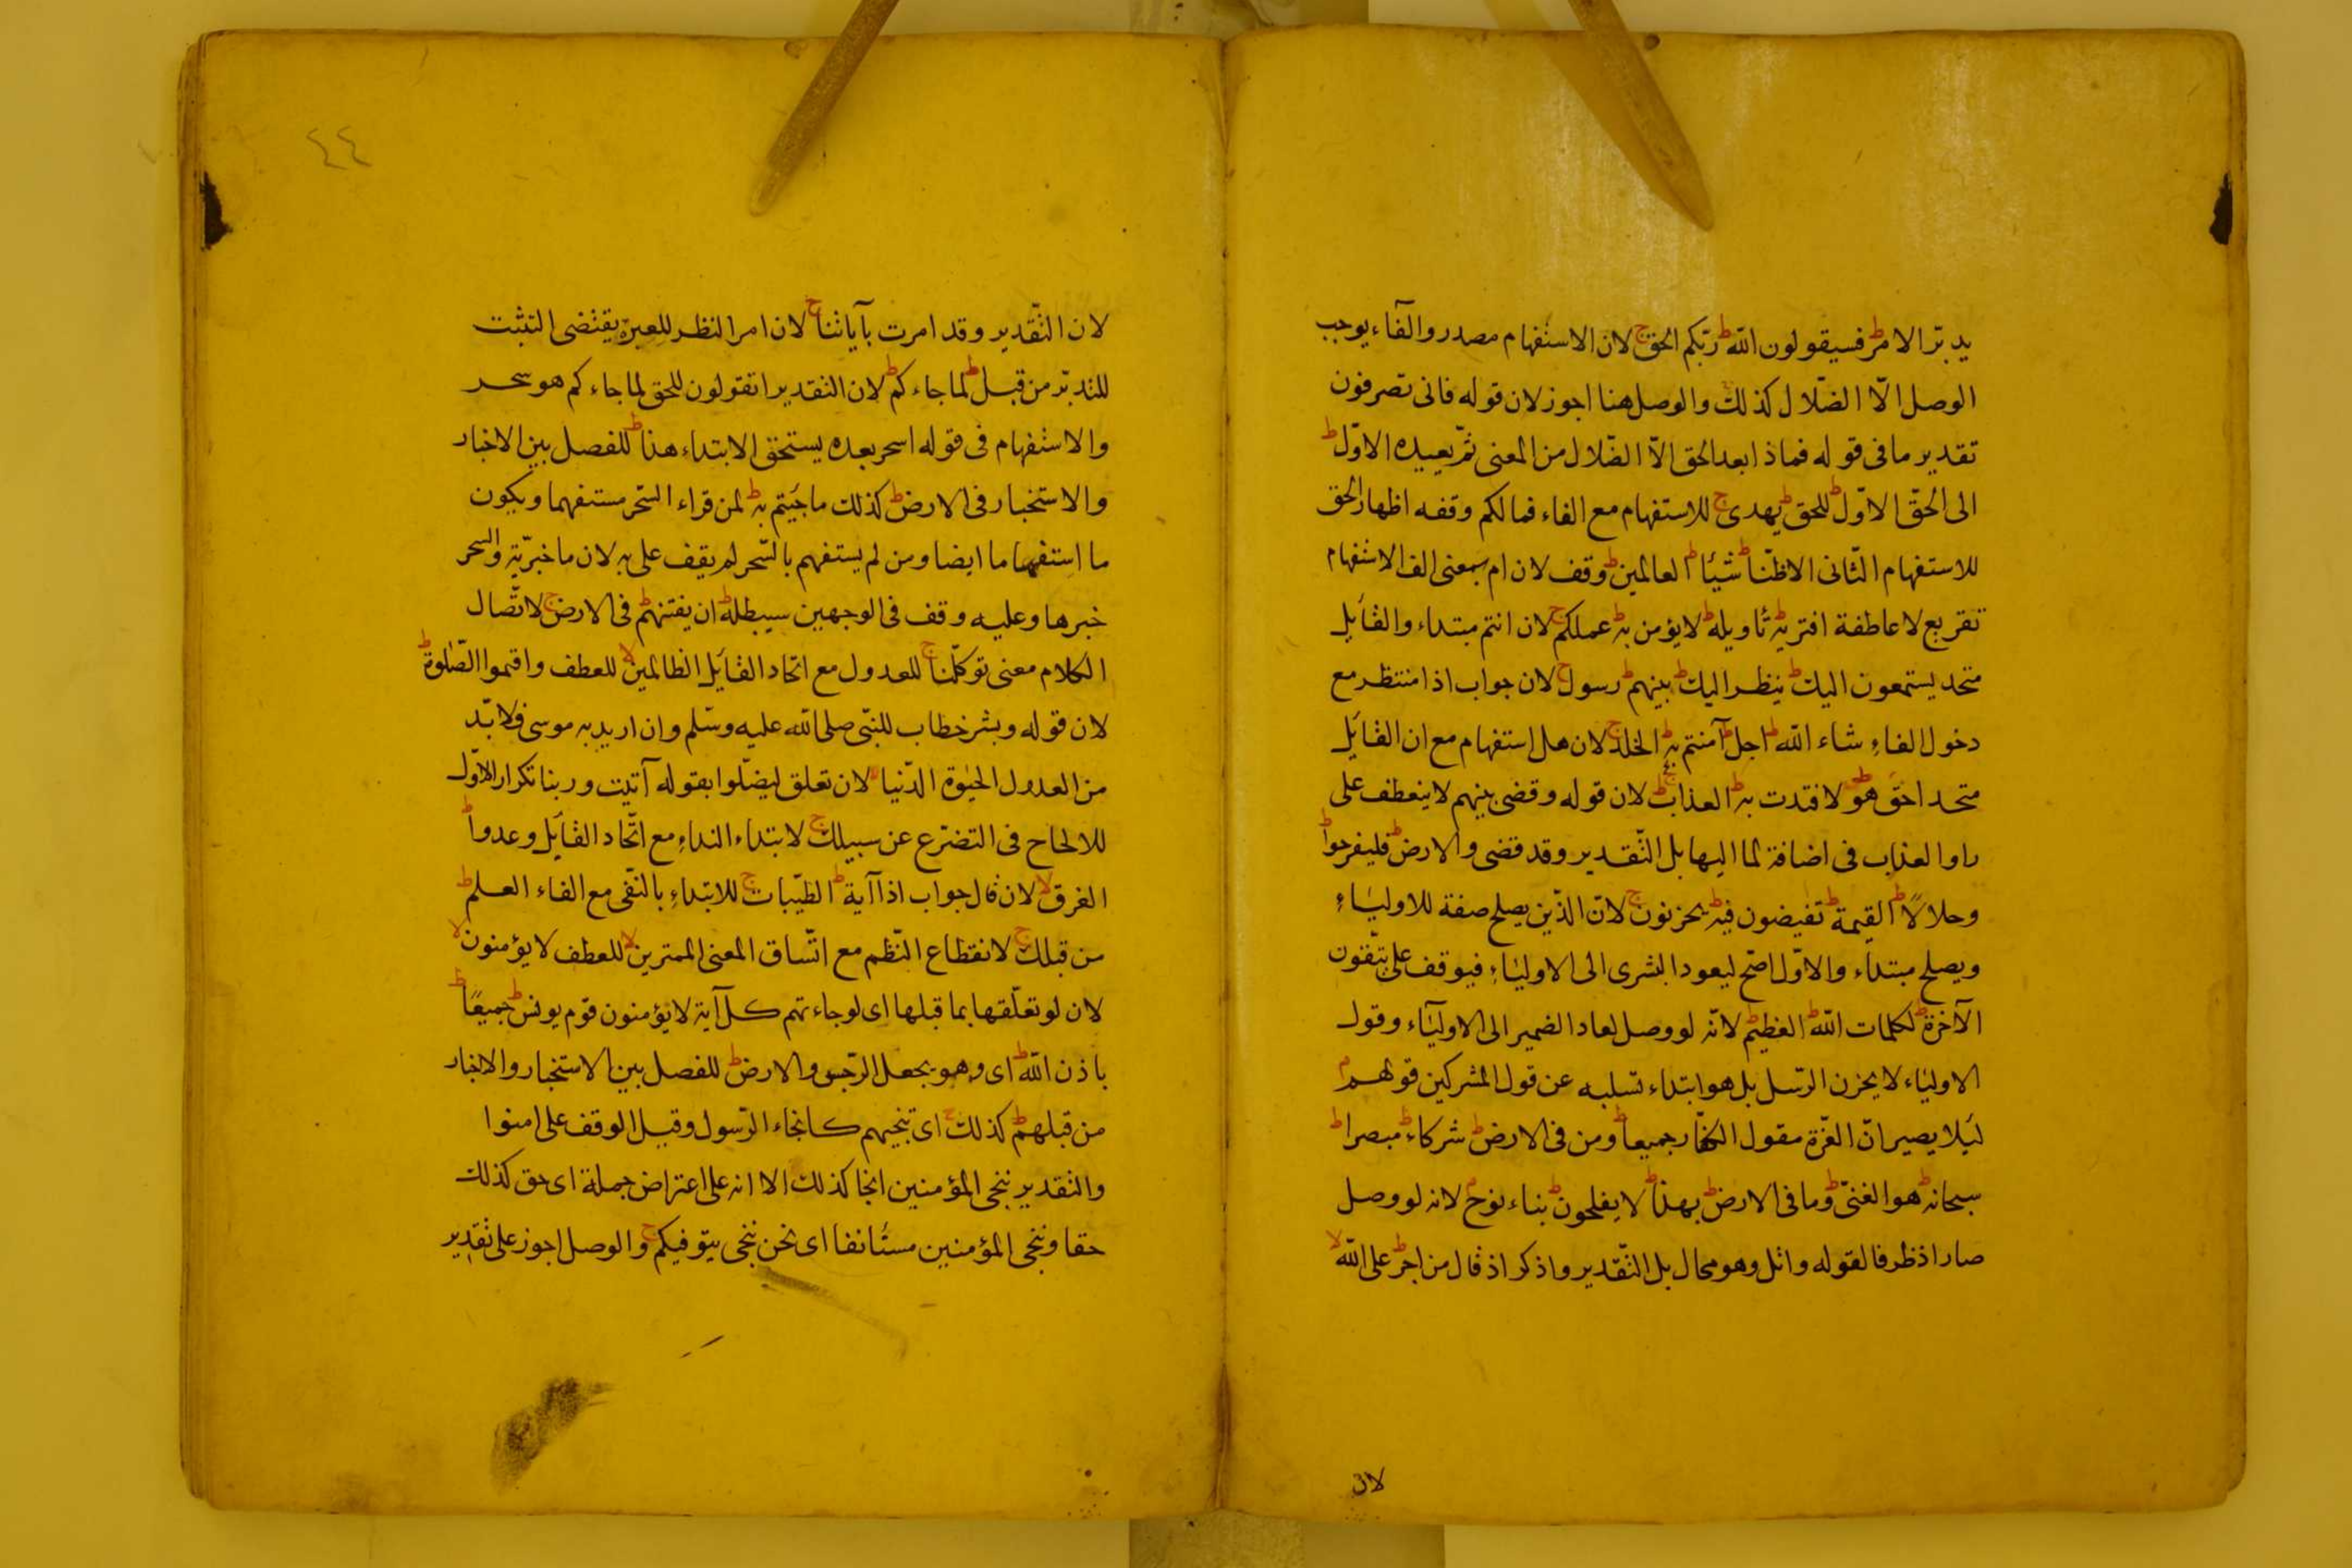 يدبّر الامرط فسيقولون اللهط ربّكم الحقج لان الاستفهام مصدر والفآء يوجب
الوصل الّا الضّلال كذلك والوصل هنا اجوز لان قوله فانى تصرفون
تقدير ما فى قوله فماذا بعد الحق الّا الضّلال من المعنى ثمّ يعيده الاوّلط
الى الحقّ الاوّلط للحقط يهدىج للاستفهام مع الفاء فمالكم وقفه اظهار الحق
للاستفهام الثّانى الاظنّاط شيئاط العالمينط وقف لان ام بمعنى الف الاستفهام
تقريع لا عاطفة افتريهط تأويلهط لا يؤمن بهط عملكمج لان انتم مبتداء والقآيل
متحد يستمعون اليكط ينظر اليكط بينهمط رسولج لان جواب اذا منتظر مع
دخول الفاءِ شاء اللهط اجلط آمنتم بهط الخلدج لان هل استفهام مع ان القآيل
متحد احق هوط لافتدت بهط العذابج لان قوله وقضى بينهم لا ينعطف على
راوا العذاب فى اضافة لما اليها بل التّقدير وقد قضى والارضط فليفرحواط
وحلالاًط القيمةط تفيضون فيهط يحزنونج لانّ الذّين يصلح صفة للاوليآءِ
ويصلح مبتداء والاوّل اصّح ليعود البشرى الى الاوليآءِ فيوقف على يتّقون
الآخرةط لكلمات اللهط العظيمط لانّه لو وصل لعاد الضمير الى الاوليآء وقول
الاوليآء لا يحزن الرّسل بل هو ابتداء تسليه عن قول المشركين قولهمم
لئلا يصير انّ العزّة مقول الكفّار جميعاط ومن فى الارضط شركاءط مبصراط
سبحانهط هو الغنىّط وما فى الارضط بهذاط لا يفلحونط نباء نوحم لانه لو وصل
صار اذ ظرفا لقوله واتل وهو محال بل التّقدير واذكر اذ قال من اجرط على اللهلا
لان
٤٤
لان التّقدير وقد امرت بآياتناج لان امر النظر للعبرة يقتضى التثبت
للتدبّر من قبلط لما جاءكمط لان التقدير اتقولون للحق لما جاءكم هو سحر
والاستفهام فى قوله اسحر بعده يستحق الابتداء هذاط للفصل بين الاخبار
والاستخبار فى الارضط كذلك ما جئتم بهط لمن قراء السّحر مستفهما ويكون
ما استفهاما ايضا ومن لم يستفهم بالسّحر لم يقف على به لان ما خبريّة والسحر
خبرها وعليه وقف فى الوجهين سيبطلهط ان يفتنهمط فى الارضج لاتّصال
الكلام معنى توكّلناج للعدول مع اتحاد القآيل الظالمينلا للعطف واقيموا الصّلوةط
لان قوله وبشر خطاب للنبّى صلى الله عليه وسّلم وان اريد به موسى فلا بّد
من العدول الحيٰوة الدّنيالا لان تعلق ليضّلوا بقوله آتيت وربنا تكرار الاوّل
للالحاح فى التضرّع عن سبيلكج لابتداء النداءِ مع اتّحاد القآيل وعدواط
الغرقلا لان قال جواب اذا آيةط الطيّباتج للابتداءِ بالنّفى مع الفاء العلمط
من قبلكج لانقطاع النّظم مع اتّساق المعنى الممترينلا للعطف لا يؤمنونلا
لان لو تعلّقها بما قبلها اى لو جاءتهم كل آية لا يؤمنون قوم يونسط جميعًاط
باذن اللهط اى وهو يجعل الرّجس والارضط للفصل بين الاستخبار والاخبار
من قبلهمط كذلكج اى تنجيهم كانجاء الرّسول وقيل الوقف على امنوا
والتقدير ننجى المؤمنين انجا كذلك الا انه على اعتراض جملة اى حق كذلك
حقا وننجى المؤمنين مستأنفا اى نحن ننجى يتوفيكمج والوصل اجوز على تقدير